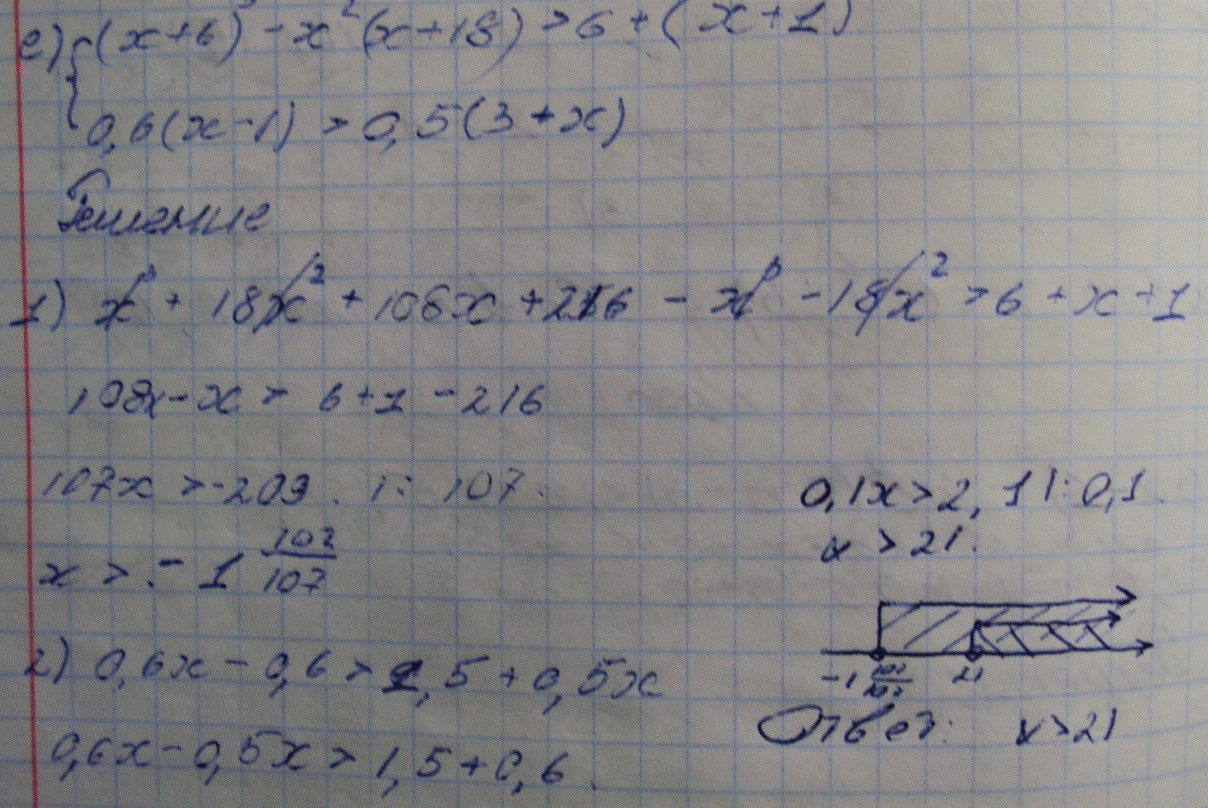 е) { (x+6)³ - x²(x+18) > 6 + (x+1)
0,6(x-1) > 0,5(3+x)
Решение
1) x³ + 18x² + 108x + 216 - x³ - 18x² > 6 + x + 1
108x - x > 6 + 1 - 216
107x > -209 . |: 107.
x > - 1 102/107
2) 0,6x - 0,6 > 1,5 + 0,5x
0,6x - 0,5x > 1,5 + 0,6 .
0,1x > 2,1 |: 0,1
x > 21.
-1 102/107 21
Ответ: x > 21